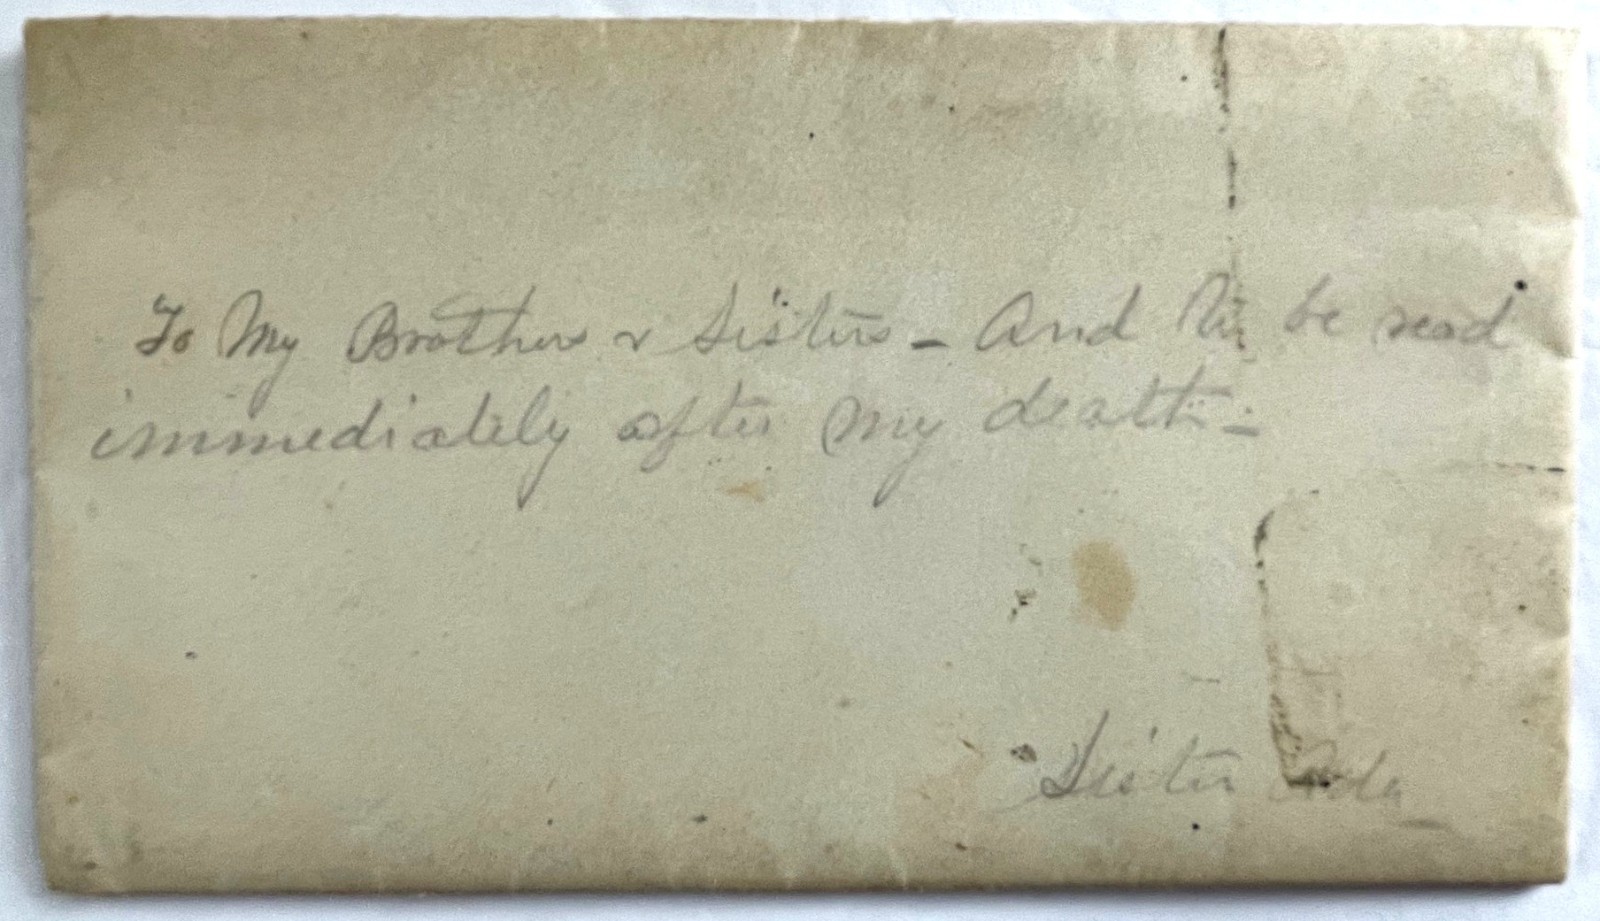 To My Brothers & Sisters - And to be read
immediately after my death -
Sister Ada